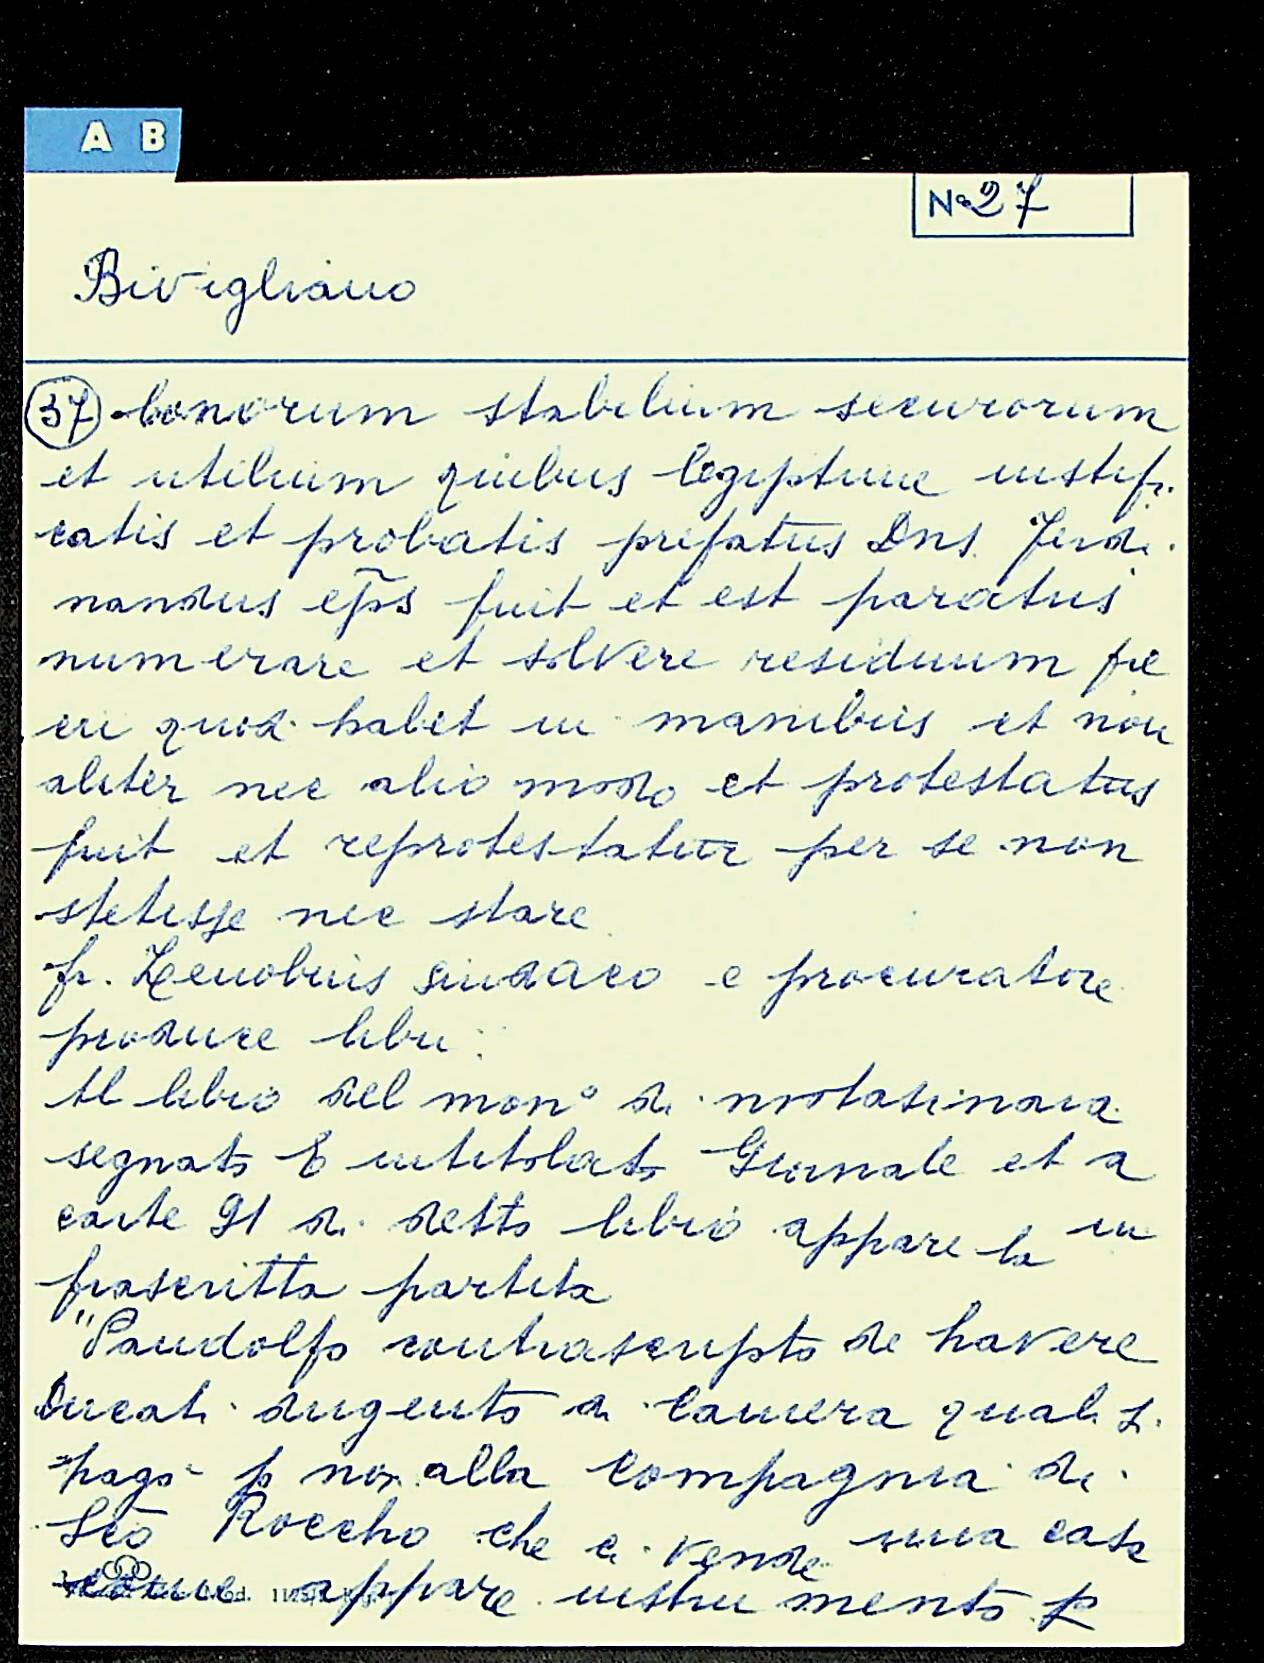 A B
No 27
Bivigliano
37 bonorum stabilium securorum
et utilium quibus legiptime iustifi.
catis et probatis prefatus Dns. Ferdi.
nandus ep̃s fuit et est paratus
numerare et solvere residuum pre
cii quod habet in manibus et non
aliter nec alio modo et protestatus
fuit et reprotestatur per se non
stetisse nec stare
fr. Zenobius sindaco e procuratore
produce libri:
Al libro del mon° di
segnato E intitolato Giornale et a
carte 91 di detto libro appare la in
frascritta partita
"Pandolfo contrascripto de havere
Ducati dugento di Camera quali si
pagò p noi alla Compagnia di
Sco Roccho che ci vende una casa
come appare instrumento p